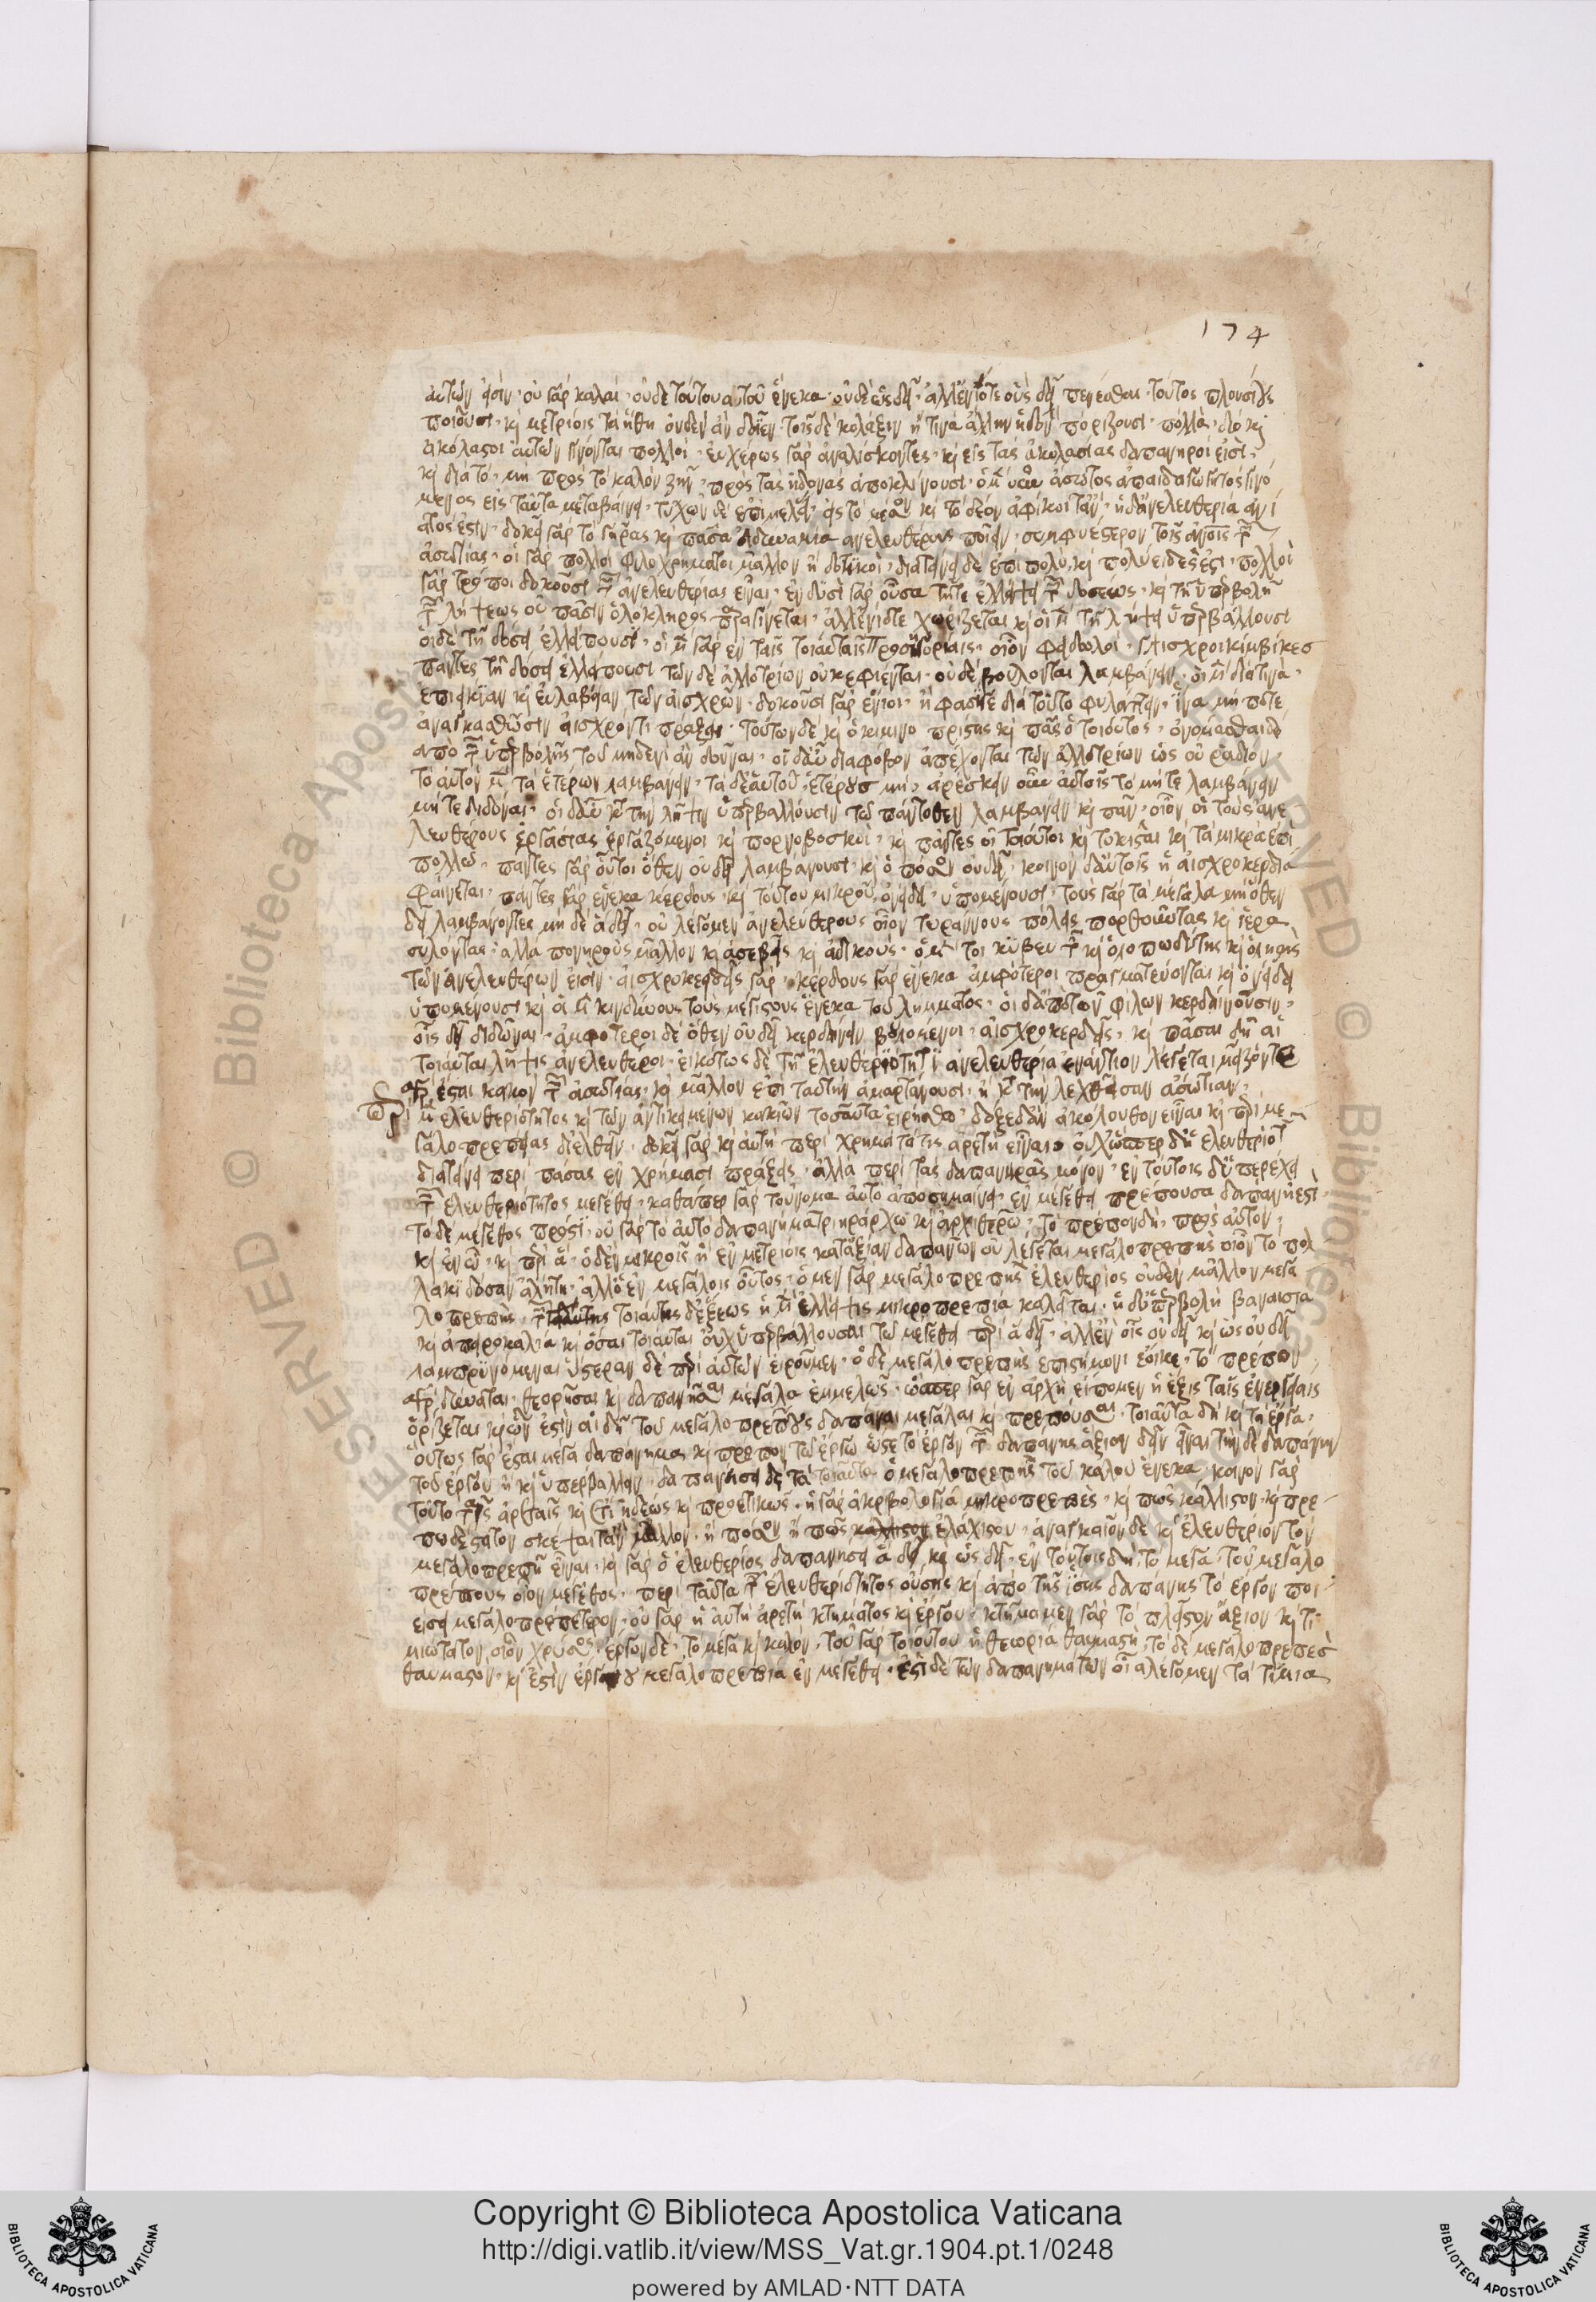 174
αὐτῶν εἰσίν· οὐ γὰρ καλαί· οὐδὲ τούτου αὐτοῦ ἕνεκα· οὐδὲ ὡς δεῖ· ἀλλ' ἐνίοτε οὓς δεῖ πένεσθαι· τούτος πλουσίους
ποιοῦσι· καὶ μετρίοις τὰ ἤθη οὐδὲν ἂν δοῖεν· τοῖς δὲ κόλαξιν ἤ τινα ἄλλην ἡδονὴν πορίζουσι· πολλά· διὸ καὶ
ἀκόλαστοι αὐτῶν γίνονται πολλοί· εὐχερῶς γὰρ ἀναλίσκοντες· καὶ εἰς τὰς ἀκολασίας δαπανηροί εἰσι·
καὶ διὰ τὸ μὴ πρὸς τὸ καλὸν ζῆν· πρὸς τὰς ἡδονὰς ἀποκλίνουσι· ὁ μὲν οὖν ἄσωτος ἀπαιδαγώγητος γινό
μενος εἰς ταῦτα μεταβαίνει· τυχὼν δὲ ἐπιμελείας εἰς τὸ μέσον καὶ τὸ δέον ἀφίκοιτ' ἄν· ἡ δ' ἀνελευθερία ἀνί
ατος ἐστίν· δοκεῖ γὰρ τὸ γῆρας καὶ πᾶσα ἀδυναμία ἀνελευθέρους ποιεῖν· συμφυέστερον τοῖς ἀνοις τῆς
ἀσωτίας· οἱ γὰρ πολλοὶ φιλοχρήματοι μᾶλλον ἢ δοτικοί· διατείνει δὲ ἐπιπολύ· καὶ πολυειδές ἐστι· πολλοὶ
γὰρ τρόποι δοκοῦσι τῆς ἀνελευθερίας εἶναι· ἐν δυσὶ γὰρ οὖσα τῇ τε ἐλλείψει τῆς δόσεως· καὶ τῇ ὑπερβολῇ
τῆς λήψεως οὐ πᾶσιν ὁλόκληρος παραγίνεται· ἀλλ' ἐνίοτε χωρίζεται καὶ οἱ μὲν τῇ λήψει ὑπερβάλλουσι
οἱ δὲ τῇ δόσει ἐλλείπουσι· οἱ μὲν γὰρ ἐν ταῖς τοιαύταις προσηγορίαις· οἷον φειδωλοί· γλίσχροι κίμβικες
πάντες τῇ δόσει ἐλλείπουσι τῶν δὲ ἀλλοτρίων οὐκ ἐφίενται· οὐδὲ βούλονται λαμβάνειν· οἱ μὲν διά τινα
ἐπιείκειαν καὶ εὐλάβειαν τῶν αἰσχρῶν· δοκοῦσι γὰρ ἔνιοι· ἢ φασί γε διὰ τοῦτο φυλάττειν· ἵνα μή ποτε
ἀναγκασθῶσιν αἰσχρόν τι πρᾶξαι· τούτων δὲ καὶ ὁ κιμινοπρίστης καὶ πᾶς ὁ τοιοῦτος· ὀνόμασθαι δὲ
ἀπὸ τῆς ὑπερβολῆς τοῦ μηδενὶ ἂν δοῦναι· οἱ δ' αὖ διὰ φόβον ἀπέχονται τῶν ἀλλοτρίων ὡς οὐ ῥᾴδιον
τὸ αὐτὸν μὲν τὰ ἑτέρων λαμβάνειν· τὰ δὲ αὐτοῦ ἑτέρους μή· ἀρέσκειν οὖν αὐτοῖς τὸ μήτε λαμβάνειν
μήτε διδόναι· οἱ δ' αὖ κατὰ τὴν λῆψιν ὑπερβάλλουσιν τῷ πάντοθεν λαμβάνειν καὶ πᾶν· οἷον οἱ τοὺς ἀνε
λευθέρους ἐργασίας ἐργαζόμενοι καὶ πορνοβοσκοί· καὶ πάντες οἱ τοιοῦτοι καὶ τοκισταὶ καὶ τὰ μικρὰ ἐπὶ
πολλῷ· πάντες γὰρ οὗτοι ὅθεν οὐ δεῖ λαμβάνουσι· καὶ ὁπόσον οὐ δεῖ· κοινὸν δ' αὐτοῖς ἡ αἰσχροκέρδια
φαίνεται· πάντες γὰρ ἕνεκα κέρδους· καὶ τούτου μικροῦ ὀνείδη· ὑπομένουσι· τοὺς γὰρ τὰ μεγάλα μὴ ὅθεν
δεῖ λαμβάνοντες μηδὲ ἃ δεῖ· οὐ λέγομεν ἀνελευθέρους οἷον τυράννους πόλεις πορθοῦντας καὶ ἱερὰ
συλόντας· ἀλλὰ πονηροὺς μᾶλλον καὶ ἀσεβεῖς καὶ ἀδίκους· ὁ μέντοι κυβευτὴς καὶ ὁ λωποδύτης καὶ ὁ ληστὴς
τῶν ἀνελευθέρων εἰσίν· αἰσχροκερδεῖς γάρ· κέρδους γὰρ ἕνεκα ἀμφότεροι πραγματεύονται καὶ ὀνείδη
ὑπομένουσι καὶ οἱ μὲν κινδύνους τοὺς μεγίστους ἕνεκα τοῦ λήμματος· οἱ δ' ἀπὸ τῶν φίλων κερδαίνουσιν·
οἷς δεῖ διδόναι· ἀμφότεροι δὲ ὅθεν οὐ δεῖ κερδαίνειν βουλόμενοι· αἰσχροκερδεῖς· καὶ πᾶσαι δὴ αἱ
τοιαῦται λήψεις ἀνελευθέροι· εἰκότως δὲ τῇ ἐλευθεριότητι ἀνελευθερία ἐναντίον λέγεται μεῖζόν τε
γάρ ἐστι κακὸν τῆς ἀσωτίας· καὶ μᾶλλον ἐπὶ ταύτην ἁμαρτάνουσι· ἢ κατὰ τὴν λεχθεῖσαν ἀσωτίαν·
περὶ μὲν ἐλευθεριότητος καὶ τῶν ἀντικειμένων κακιῶν τοσαῦτα εἰρήσθω· δόξει δ' ἂν ἀκόλουθον εἶναι καὶ περὶ με
γαλοπρεπείας διελθεῖν· δοκεῖ γὰρ καὶ αὐτὴ περὶ χρήματά τις ἀρετὴ εἶναι· οὐχ ὥσπερ δ' ἡ ἐλευθεριότης
διατείνει περὶ πάσας ἐν χρήμασι πράξεις· ἀλλὰ περὶ τὰς δαπανηρὰς μόνον· ἐν τούτοις δ' ὑπερέχει
τῆς ἐλευθεριότητος μεγέθει· καθάπερ γὰρ τοὔνομα αὐτὸ ἀποσημαίνει· ἐν μεγέθει πρέπουσα δαπάνη ἐστί·
τὸ δὲ μέγεθος πρός τι· οὐ γὰρ τὸ αὐτὸ δαπάνημα τριηράρχῳ καὶ ἀρχιθεωρῷ· τὸ πρέπον δή· πρὸς αὐτόν·
καὶ ἐν ᾧ· καὶ περὶ ἅ· ὁ δ' ἐν μικροῖς ἢ ἐν μετρίοις κατ' ἀξίαν δαπανῶν οὐ λέγεται μεγαλοπρεπὴς οἷον τὸ πολ
λάκι δόσκεν ἀλήτῃ· ἀλλ' ὁ ἐν μεγάλοις οὕτος· ὁ μὲν γὰρ μεγαλοπρεπὴς ἐλευθέριος οὐδὲν μᾶλλον μεγα
λοπρεπής· τῆς τοιαύτης δ' ἕξεως ἡ μὲν ἔλλειψις μικροπρέπια καλεῖται· ἡ δ' ὑπερβολὴ βαναυσία
καὶ ἀπειροκαλία καὶ ὅσαι τοιαῦται οὐχ ὑπερβάλλουσαι τῷ μεγέθει περὶ ἃ δεῖ· ἀλλ' ἐν οἷς οὐ δεῖ καὶ ὡς οὐ δεῖ
λαμπρυνόμεναι ὕστερον δὲ περὶ αὐτῶν ἐροῦμεν· ὁ δὲ μεγαλοπρεπὴς ἐπιστήμονι ἔοικε· τὸ πρέπον
γὰρ δύναται θεωρῆσαι καὶ δαπανῆσαι μεγάλα ἐμμελῶς· ὥσπερ γὰρ ἐν ἀρχῇ εἴπομεν ἡ ἕξις ταῖς ἐνεργείαις
ὁρίζεται καὶ ὧν ἐστιν αἱ δὴ τοῦ μεγαλοπρεποῦς δαπάναι μεγάλαι καὶ πρέπουσαι· τοιαῦτα δὴ καὶ τὰ ἔργα·
οὕτως γὰρ ἔσται μέγα δαπάνημα καὶ πρέπον τῷ ἔργῳ ὥστε τὸ ἔργον τῆς δαπάνης ἄξιον δεῖν εἶναι τὴν δὲ δαπάνην
τοῦ ἔργου ἢ καὶ ὑπερβάλλειν· δαπανήσει δὲ τὰ τοιαῦτα ὁ μεγαλοπρεπὴς τοῦ καλοῦ ἕνεκα· κοινὸν γὰρ
τοῦτο ταῖς ἀρεταῖς καὶ ἔτι ἡδέως καὶ προετικῶς· ἡ γὰρ ἀκριβολογία μικροπρεπές· καὶ πῶς κάλλιστον καὶ πρε
πωδέστατον σκέψαιτ' ἂν μᾶλλον· ἢ πόσου ἢ πῶς κάλλιστον ἐλάχιστον· ἀναγκαῖον δὲ καὶ ἐλευθέριον τὸν
μεγαλοπρεπῆ εἶναι· καὶ γὰρ ὁ ἐλευθέριος δαπανήσει ἃ δεῖ καὶ ὡς δεῖ· ἐν τούτοις δὴ τὸ μέγα τοῦ μεγαλο
πρέπους οἷον μέγεθος· περὶ ταῦτα τῆς ἐλευθεριότητος οὔσης καὶ ἀπὸ τῆς ἴσης δαπάνης τὸ ἔργον ποι
εῖσει μεγαλοπρεπέτερον· οὐ γὰρ ἡ αὐτὴ ἀρετὴ κτήματος καὶ ἔργου· κτῆμα μὲν γὰρ τὸ πλεῖστον ἄξιον καὶ τι
μιώτατον οἷον χρυσός· ἔργον δέ· τὸ μέγα καὶ καλόν· τοῦ γὰρ τοιούτου ἡ θεωρία θαυμαστή· τὸ δὲ μεγαλοπρεπὲς
θαυμαστόν· καὶ ἔστιν ἔργου μεγαλοπρεπία ἐν μεγέθει· ἔστι δὲ τῶν δαπανημάτων οἷα λέγομεν τὰ τίμια
Copyright © Biblioteca Apostolica Vaticana
http://digi.vatlib.it/view/MSS_Vat.gr.1904.pt.1/0248
powered by AMLAD·NTT DATA
BIBLIOTECA APOSTOLICA VATICANA
BIBLIOTECA APOSTOLICA VATICANA